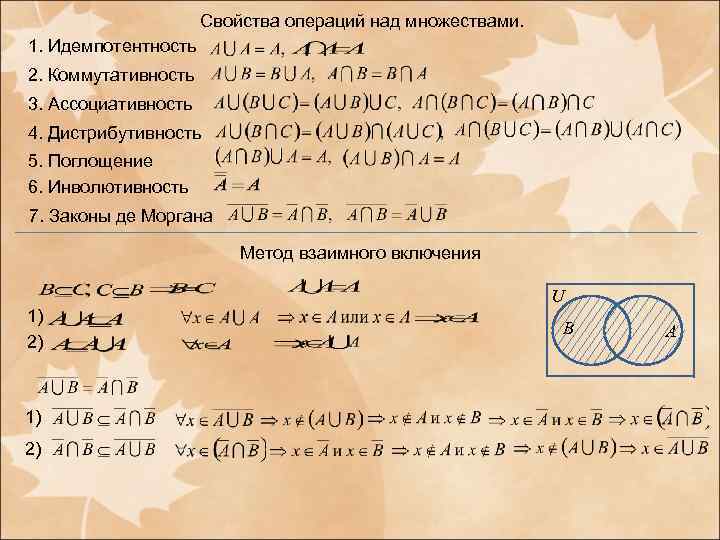 Свойства операций над множествами.
1. Идемпотентность A⋃A = A, A⋂A=A
2. Коммутативность A⋃B = B⋃A, A⋂B = B⋂A
3. Ассоциативность A⋃(B⋃C)=(A⋃B)⋃C, A⋂(B⋂C)=(A⋂B)⋂C
4. Дистрибутивность A⋃(B⋂C)=(A⋃B)⋂(A⋃C), A⋂(B⋃C)=(A⋂B)⋃(A⋂C)
5. Поглощение (A⋂B)⋃A = A, (A⋃B)⋂A = A
6. Инволютивность A̿ = A
7. Законы де Моргана \overline{A⋃B} = \overline{A}⋂\overline{B}, \overline{A⋂B} = \overline{A}⋃\overline{B}
Метод взаимного включения
B⊆C, C⊆B ⇒ B=C A⋃A=A
U
1) A⋃A⊆A ∀x∈A⋃A ⇒ x∈A или x∈A ⇒ x∈A
B A
2) A⊆A⋃A ∀x∈A ⇒ x∈A⋃A
\overline{A⋃B} = \overline{A}⋂\overline{B}
1) \overline{A⋃B} ⊆ \overline{A}⋂\overline{B} ∀x∈\overline{A⋃B} ⇒ x∉(A⋃B) ⇒ x∉A и x∉B ⇒ x∈\overline{A} и x∈\overline{B} ⇒ x∈(\overline{A}⋂\overline{B})
2) \overline{A}⋂\overline{B} ⊆ \overline{A⋃B} ∀x∈(\overline{A}⋂\overline{B}) ⇒ x∈\overline{A} и x∈\overline{B} ⇒ x∉A и x∉B ⇒ x∉(A⋃B) ⇒ x∈\overline{A⋃B}